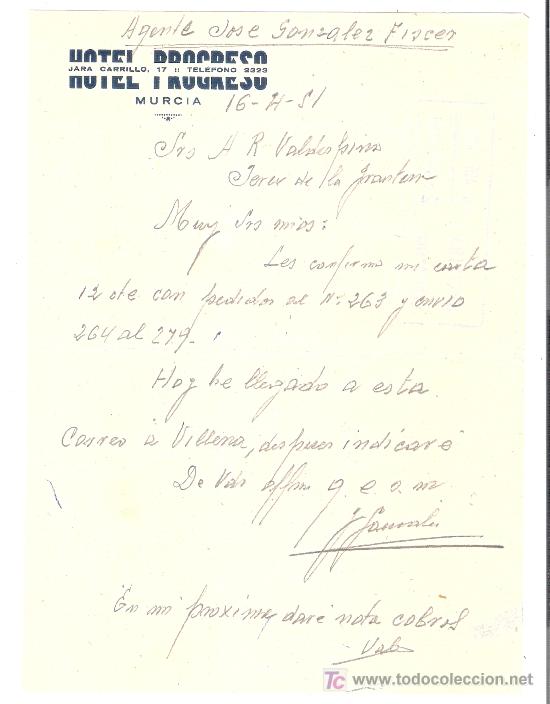 Agente Jose Gonzalez Fiscer
HOTEL PROGRESO
JARA CARRILLO, 17 :: TELEFONO 2323
HOTEL PROGRESO
MURCIA
16-4-51
Srs A R Valdespino
Jerez de la Frontera
Muy Srs mios:
Les confirmo mi carta
12 de con pedidos al Nº 263 y envio
264 al 279.
Hoy he llegado a esta
Correo a Villena, despues indicaré
De Vds affmo q. e. s. m.
J Gonzalez
En mi proxima, daré nota cobros
Vale
TC www.todocoleccion.net